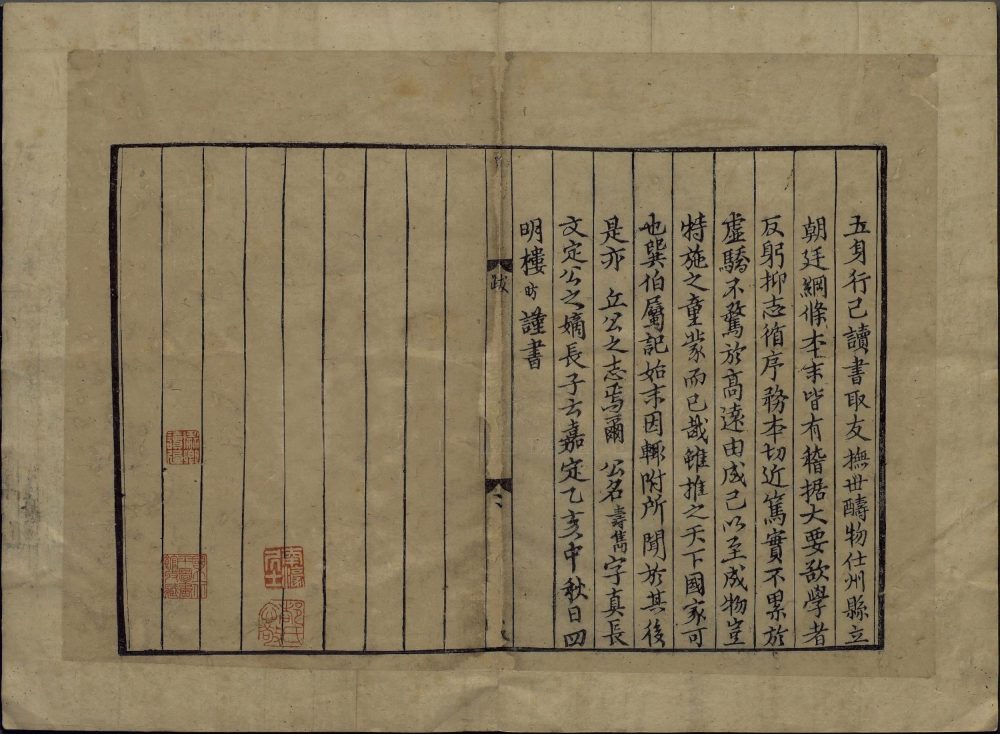 五身行己讀書取友撫世醻物仕州縣立
朝廷綱條本末皆有稽据大要欲學者
反躬抑志循序務本切近篤實不累於
虛驕不騖於髙遠由成己以至成物豈
特施之童蒙而已哉雖推之天下國家可
也巽伯屬記始末因輒附所聞於其後
是亦丘公之志焉爾公名壽雋字真長
文定公之嫡長子云嘉定乙亥中秋日四
明樓昉謹書
跋